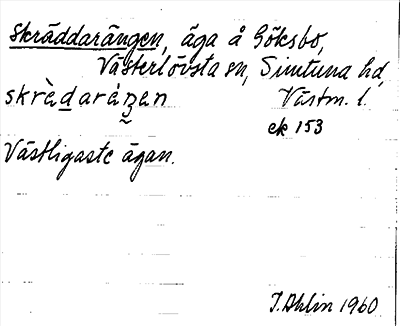 Skräddarängen, äga å Göksbo,
Västerlövsta sn, Simtuna hd,
skrèdaráŋen Västm. l.
ek 153
Västligaste ägan.
J. Ahlin 1960